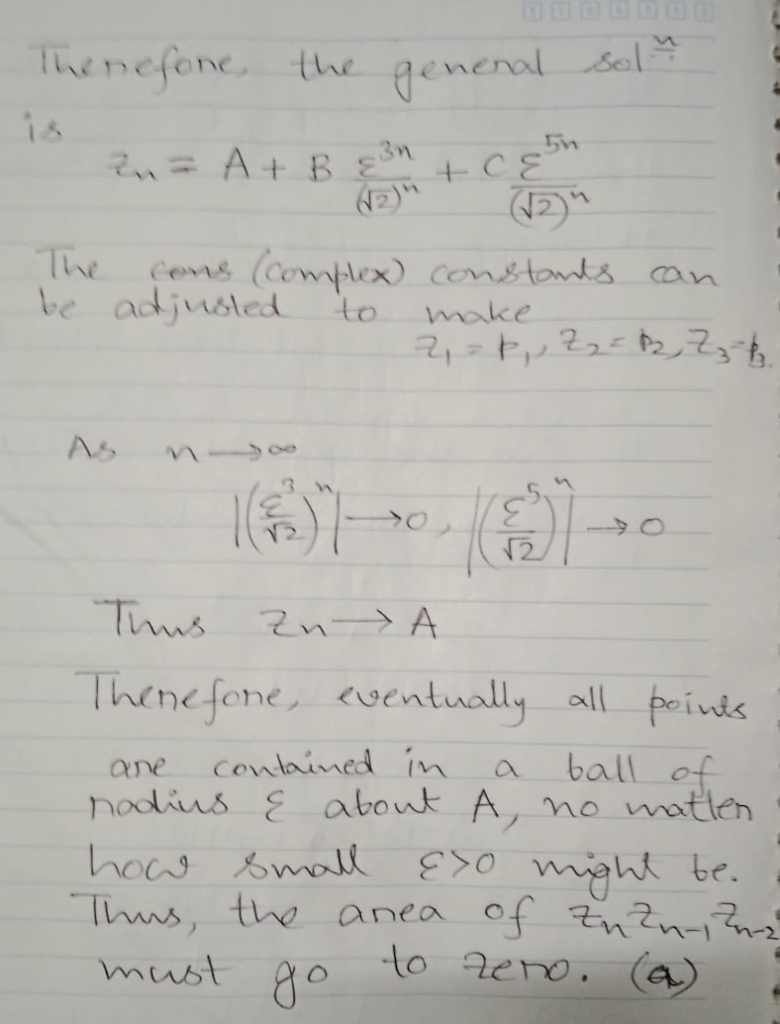 Therefore, the general solⁿ
is
zₙ = A + B ε³ⁿ/(√2)ⁿ + C ε⁵ⁿ/(√2)ⁿ
The cons (complex) constants can
be adjusted to make
z₁ = p₁, z₂ = p₂, z₃ = p₃.
As n → ∞
|(ε³/√2)ⁿ| → 0, |(ε⁵/√2)ⁿ| → 0
Thus zₙ → A
Therefore, eventually all points
are contained in a ball of
radius ε about A, no matter
how small ε>0 might be.
Thus, the area of zₙ zₙ₋₁ zₙ₋₂
must go to zero. (a)